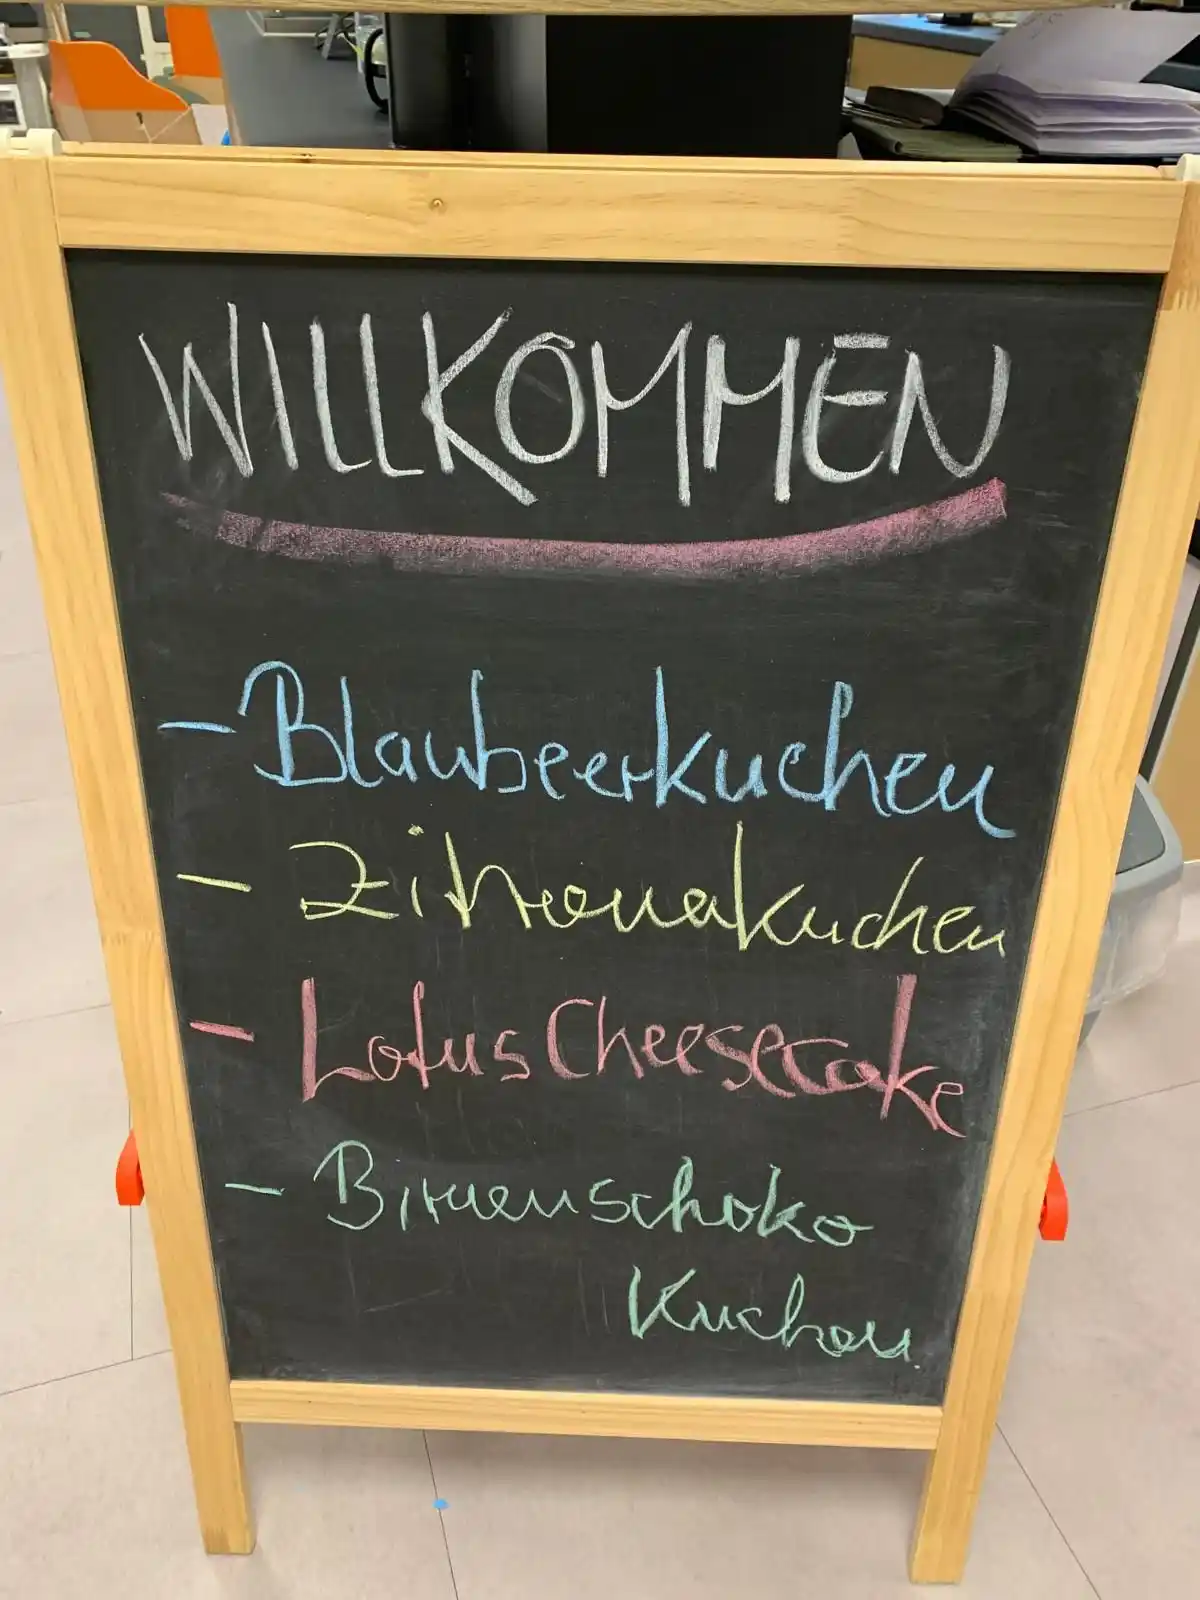 WILLKOMMEN
- Blaubeerkuchen
- Zitronakuchen
- Lotus Cheesecake
- Birnenschoko
Kuchen